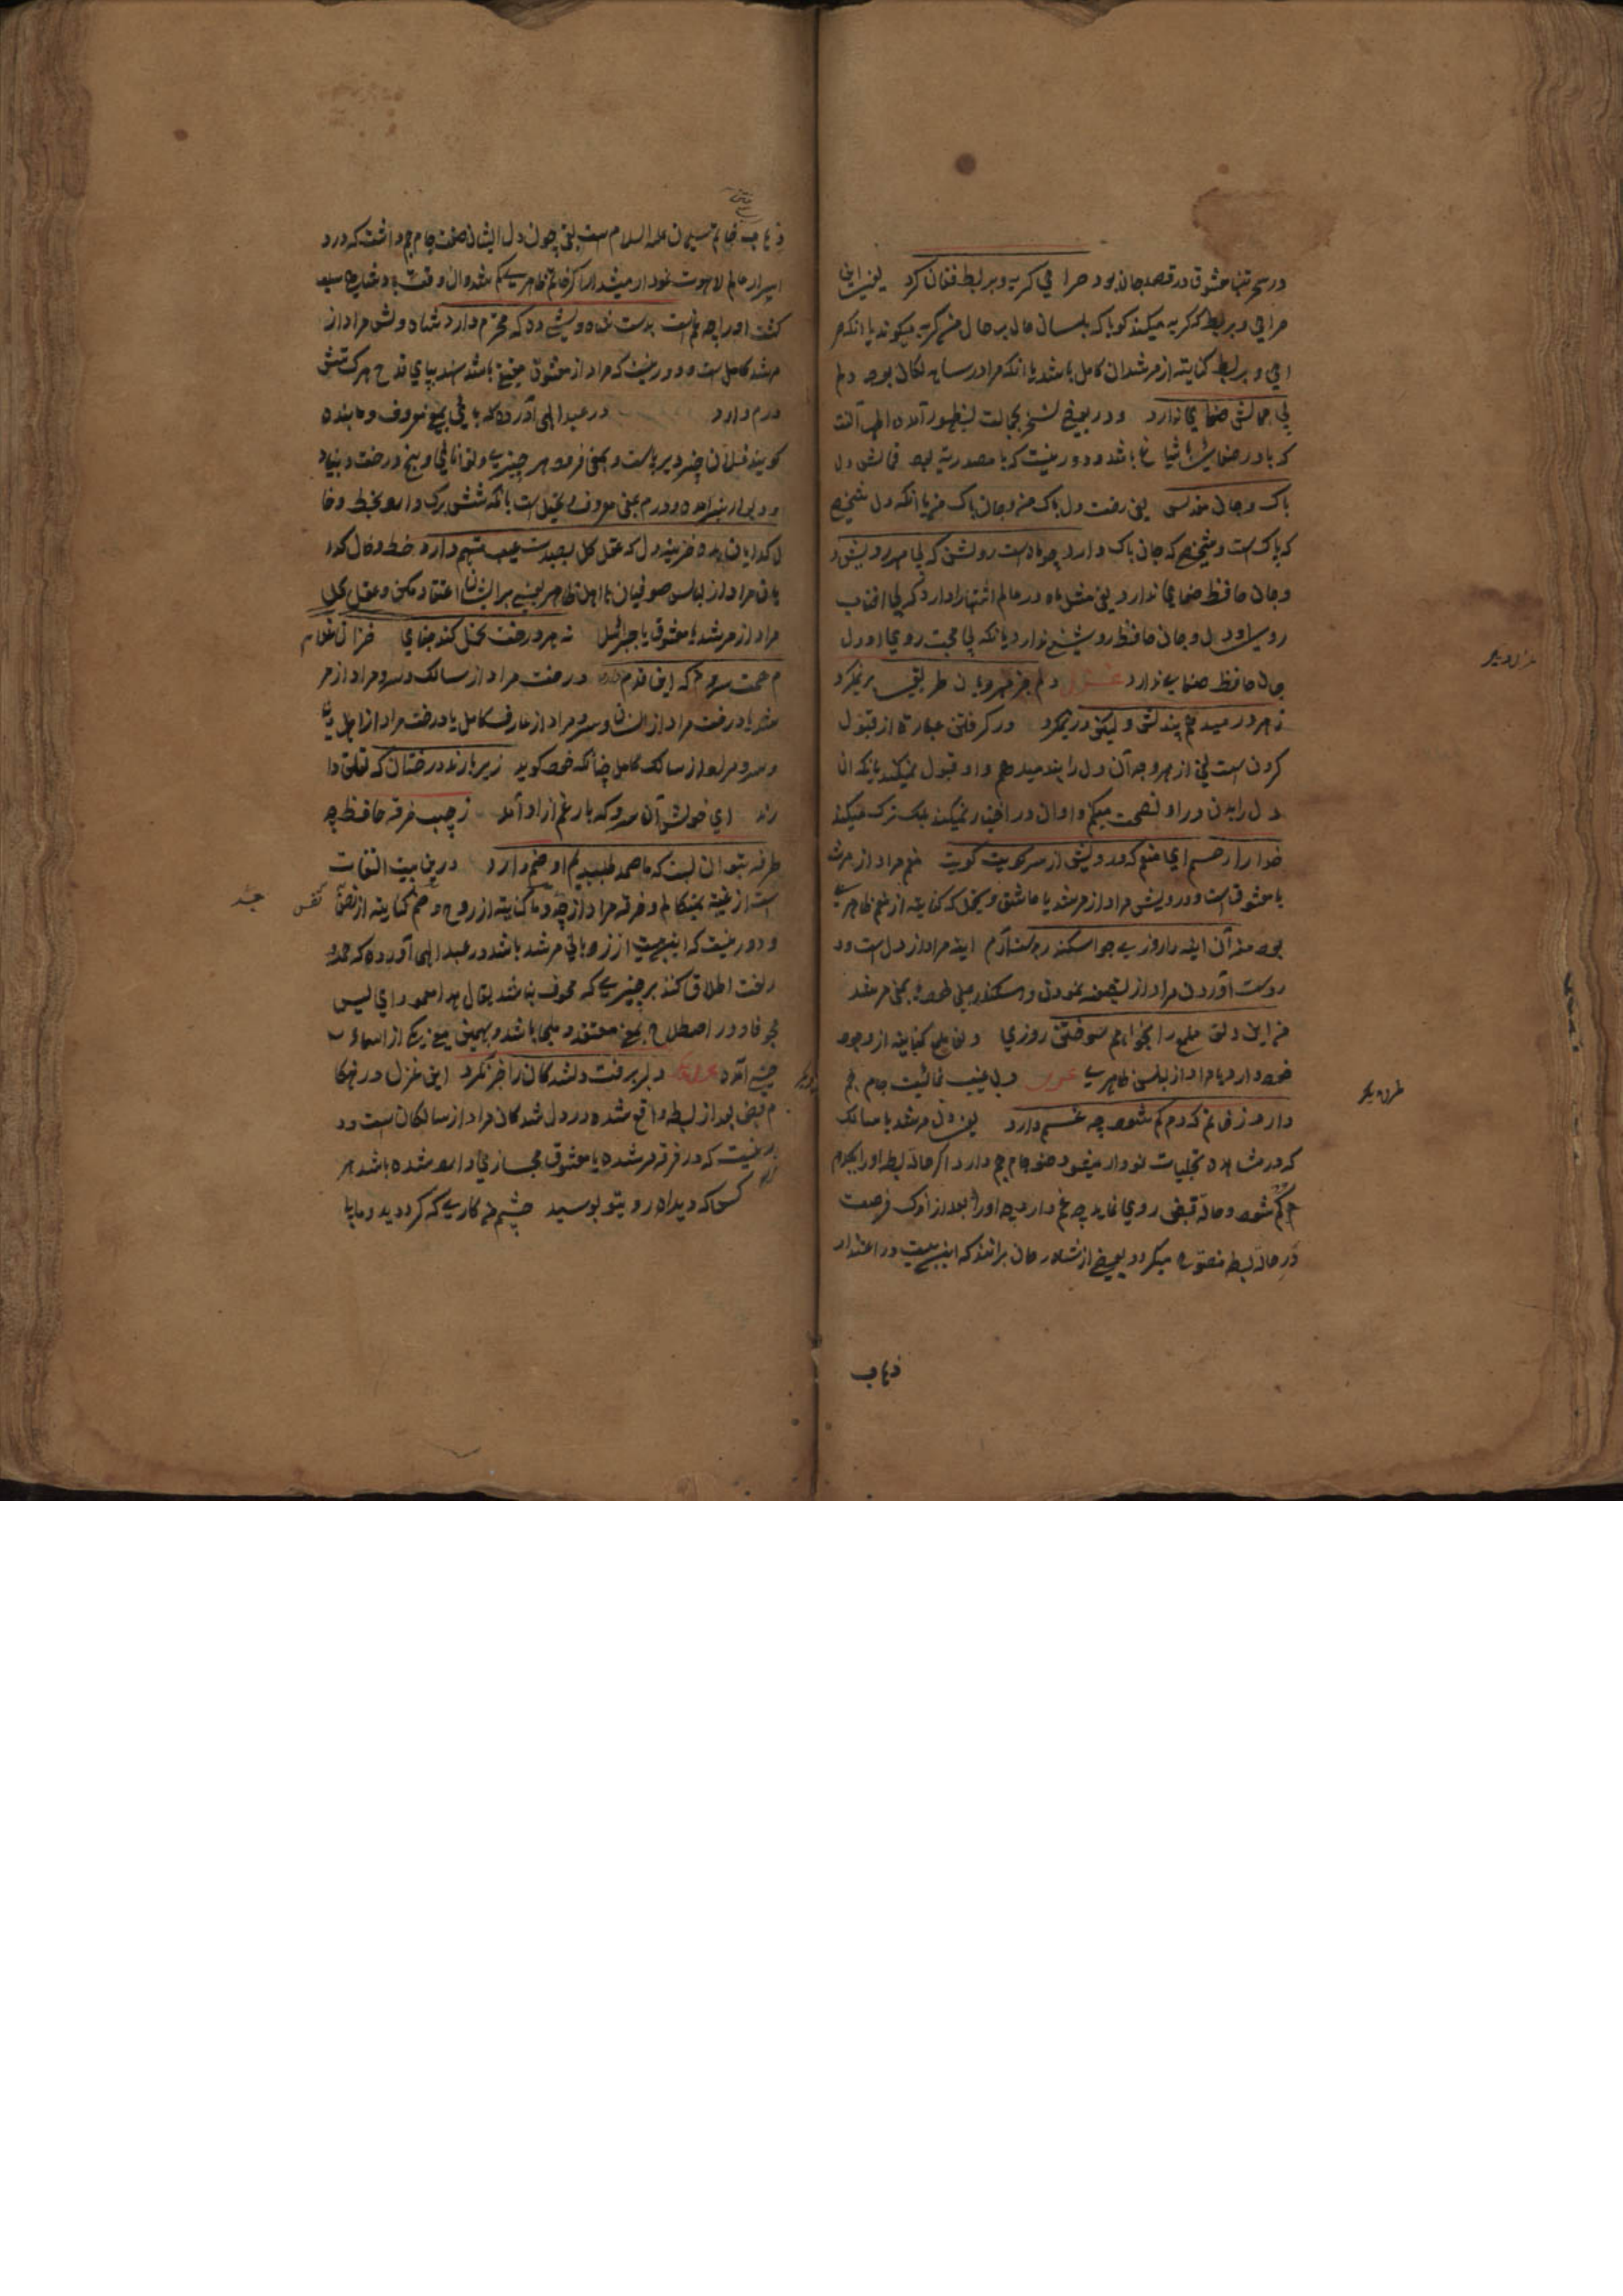 در سحر تنها معشوق در قصد جان بود صراحی گریه و بربط فغان کرد یعنی این
صراحی و بربط که گریه میکند گویا که بلسان حال بر حال من گریه میکوند یا انکه صر
احی و بربط کنایته از مرشدان کامل باشد یا انکه مراد رسایل لکان بود دلم
بی جمالش صفای ندارد و در بعضی نسخ بجالت بظهور آمده
که باد در صفایش اشیاغ باشد و دور نیست که با مصدریه بود قماش دل
پاک و جان مقدس یعنی رفت دل پاک من و جان پاک من یا انکه دل شخص
که پاکست و شخصی که جان پاک دارد چو ماه است روشن که بی مهر رویش د
و جان حافظ صفای ندارد یعنی مثل ماه در عالم اشتهار دارد که بی افتاب
روی او دل و جان حافظ روشنی ندارد یا انکه بی محبت روی او دل
جان حافظ صفای ندارد غزل دلم جز مهر مهرویان طریقی بر نمیگرد
ز هر در میدهم پندش و لیکن در نمیگرد در گرفتن عبارة از قبول
کردن است یعنی از هر وجه آن دل را پند میدهم و او قبول نمیکند یا انکه ان
دل را بدان در او نصیحت میکنم و او ان در اختیار نمیکند بلکه ترک میکند
خدا را رحم ای منعم که درویش از سر کویت کویت منعم مراد از مرشد
یا معشوق است و درویش مراد از مرشد یا عاشق و یحتمل که کنایته از منعم ظاهری
بود من آن اینه را روزی چو اسکندر بدست آرم اینه مراد از دل است و د
ردست آوردن مراد از تصفیه نمودن و اسکندر بمعنی مرشد
من این دلق ملمع را بخواهم سوختن روزی دلق ملمع کنایته از وجود
خود دارد یا مراد از لباس ظاهری غزل دلی غیب نمائیست جام جم
دارد ز خاتم که دم گم شود چه غم دارد یعنی دل مرشد یا سالک
که در مشاهده تجلیات نودار میشود صفو جام جم دارد اگر حالة بسط او را یکدم
گم شود و حالة قبض روی نماید چه غم دارد چه او را بعد از اندک فرصت
در حالة بسط متصور میگردد و بعضی از شارحان برانند که این بیت در اعتذار
ذهاب
ذهاب خاتم سلیمان علیه السلام است یعنی چون دل ایشان صفت جام جم داشت که در و
اسرار عالم لاهوت نمودار میشد اگر خاتم ظاهری گم شد و ان وقت
گشت او را چه غم است بدست شاه وشی ده که محترم دارد شاه وش مراد از
مرشد کامل است و دور نیست که مراد از معشوق حقیقی باشد نهد بپای قدح هر که شش
درم دارد در عبد الهی آورده که باقی بمعنی معروف و مانده
گویند فلان چیز دیرپاست و بمعنی فرود هر چیزی و لتوانائی و بیخ درخت و بنیاد
و دیوار نیز امده و درم بمعنی معروف یحتمل است بانکه شش برگ دارد بخط و خا
ل گدایان مده خزینه دل که عقل کل بصدت عیب متهم دارد خط و خال گدا
یان مراد از لباس صوفیان یا اهل ظاهر یعنی بر ایشان اعتقاد مکن و عقل کل
مراد از مرشد یا معشوق یا جبرائیل نه هر درخت تحمل کند جفای خزان غلام
م همت سروم که این قدم دارد درخت مراد از سالک و سرو مراد از مر
شد یا درخت مراد از انسان و سرو مراد از عارف کامل یا درخت مراد از اهل دنیا
و سرو مراد از سالک کامل چنانکه خود گوید زیر بارند درختان که تعلق دا
رند ای خوش آن سرو که بار غم از ازاد آمد ز جیب خرقه حافظ چه
طرف بتوان بست که ما صمد طلبیدیم او صنم دارد درین بیت التفات
است از غیبته بمتکلم و خرقه مراد از جثه و ما کنایته از روح و صنم کنایته از نفس
نفس
جثه
و دور نیست که این بیت از زوبانی مرشد باشد در عبد الهی آورده که صمد
در لغت اطلاق کنند بر چیزی که مجوف نباشد یقال هذا صمد ای لیس
مجوفا و در اصطلاح بمعنی معتقد و ملجا باشد و بهمین معنی یکی از اسماء
حسنی آمده غزل دیگر دلبر برفت و دلشدگان را خبر نکرد این غزل در هنگا
م قبض بعد از بسط واقع شده و دلشدگان مراد از سالکان است و د
ور نیست که در فرقه مرشده یا معشوق مجازی وارد شده باشد هر
کسی که دیداه رویتو بوسید چشم من کاری که کرد دیده و ما یا
غزل دیگر